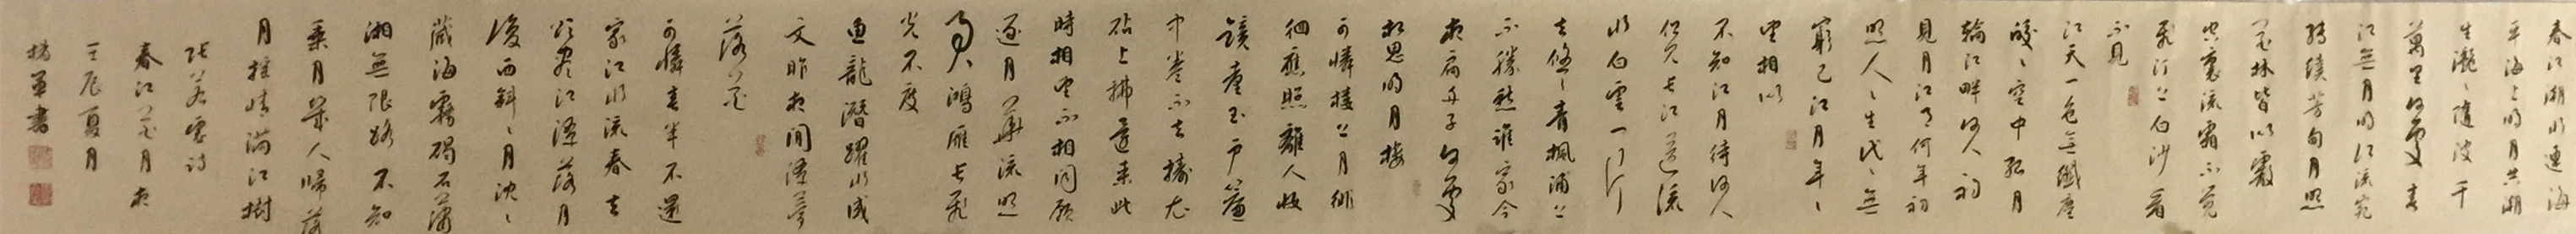 春江潮水連海
平海上明月共潮
生灩〻隨波千
萬里何處春
江無月明江流宛
轉繞芳甸月照
花林皆似霰
空裏流霜不覺
飛汀上白沙看
不見
江天一色無纖塵
皎〻空中孤月
輪江畔何人初
見月江月何年初
照人〻生代〻無
窮已江月年〻
望相似
不知江月待何人
但見長江送流
水白雲一片
去悠〻青楓浦上
不勝愁誰家今
夜扁舟子何處
相思明月樓
可憐樓上月徘
徊應照離人妝
鏡臺玉戶簾
中卷不去擣衣
砧上拂還來此
時相望不相聞願
逐月華流照
君鴻雁長飛
光不度
魚龍潛躍水成
文昨夜閒潭夢
落花
可憐春半不還
家江水流春去
欲盡江潭落月
復西斜〻月沈〻
藏海霧碣石瀟
湘無限路不知
乘月幾人歸落
月搖情滿江樹
張若虛詩
春江花月夜
壬辰夏月
楊軍書